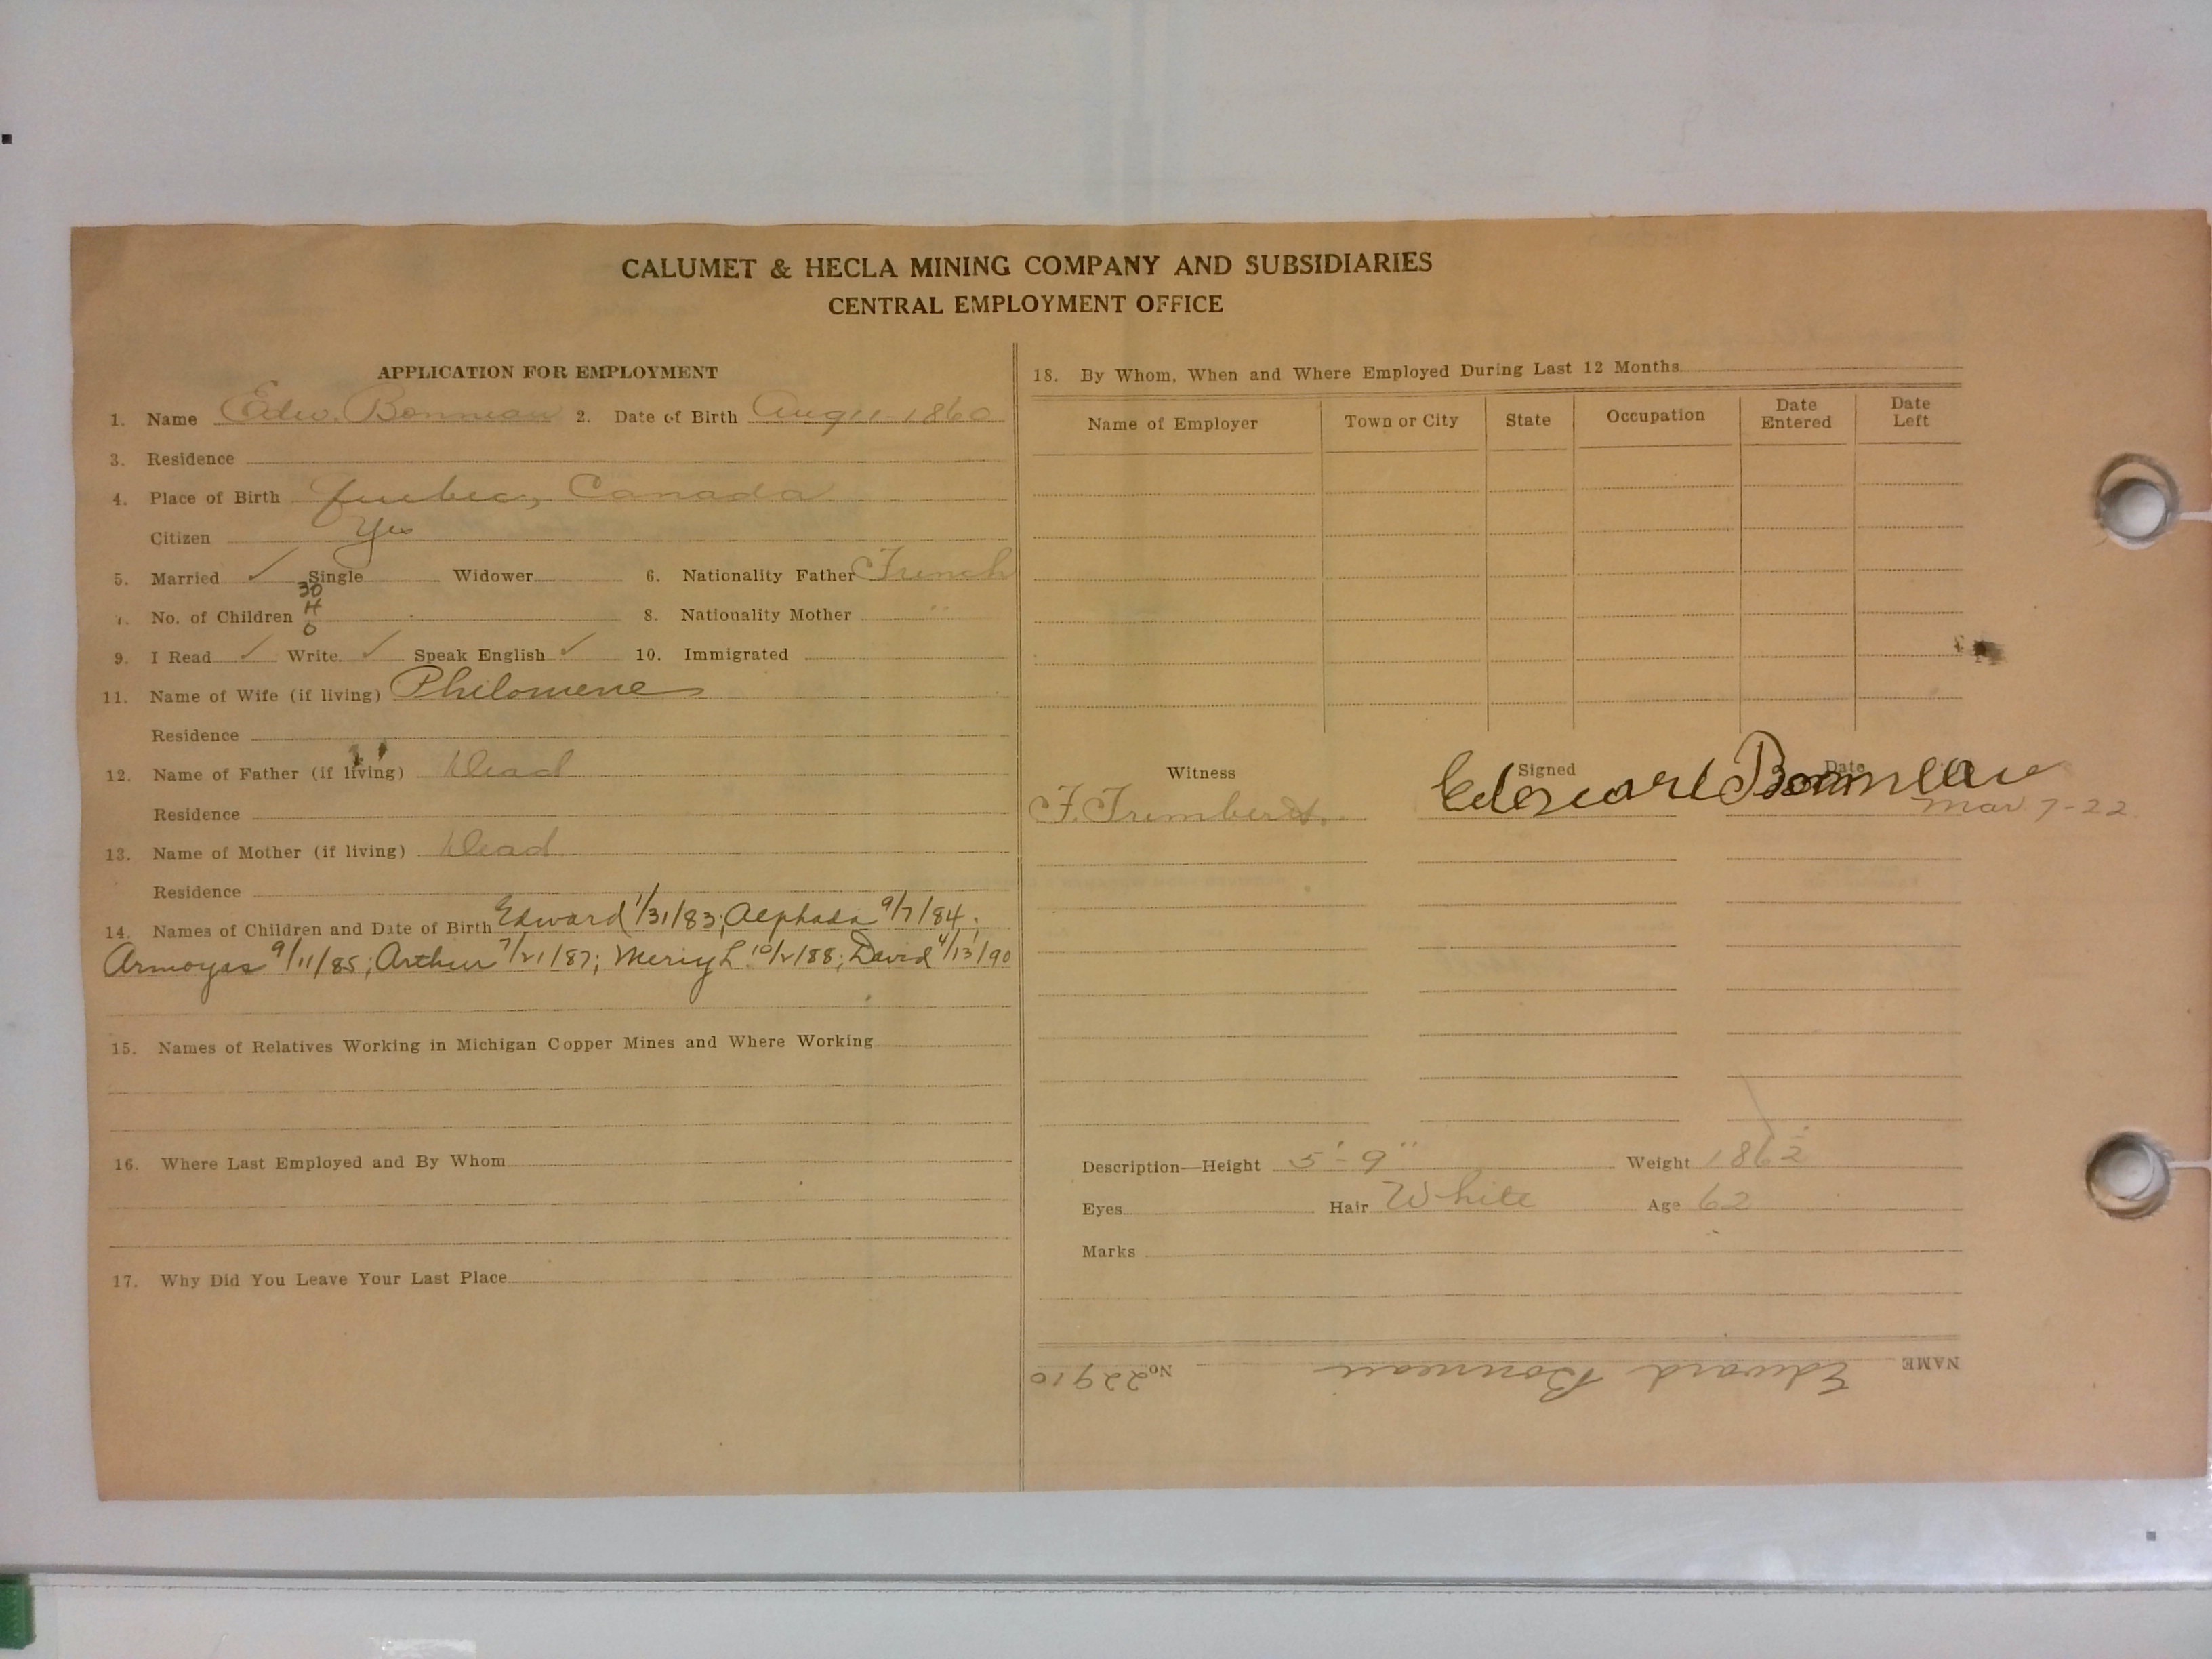 CALUMET & HECLA MINING COMPANY AND SUBSIDIARIES
CENTRAL EMPLOYMENT OFFICE
APPLICATION FOR EMPLOYMENT
1. Name Edw. Bonneau 2. Date of Birth Aug 11-1860
3. Residence
4. Place of Birth Quebec, Canada
Citizen Yes
5. Married ✓ Single Widower 6. Nationality Father French
30
7. No. of Children H 8. Nationality Mother "
0
9. I Read ✓ Write ✓ Speak English ✓ 10. Immigrated
11. Name of Wife (if living) Philomene
Residence
12. Name of Father (if living) Dead
Residence
13. Name of Mother (if living) Dead
Residence
14. Names of Children and Date of Birth Edward 1/31/83; 9/7/84;
9/11/85; Arthur 7/21/87; L. 10/2/88; David 4/13/90
15. Names of Relatives Working in Michigan Copper Mines and Where Working
16. Where Last Employed and By Whom
17. Why Did You Leave Your Last Place
18. By Whom, When and Where Employed During Last 12 Months
Name of Employer Town or City State Occupation Date Entered Date Left
Witness Signed Date
F. Edward Bonneau
Mar 7-22
Description—Height 5'-9" Weight 1862
Eyes Hair White Age 62
Marks
NAME Edward Bonneau No 22910